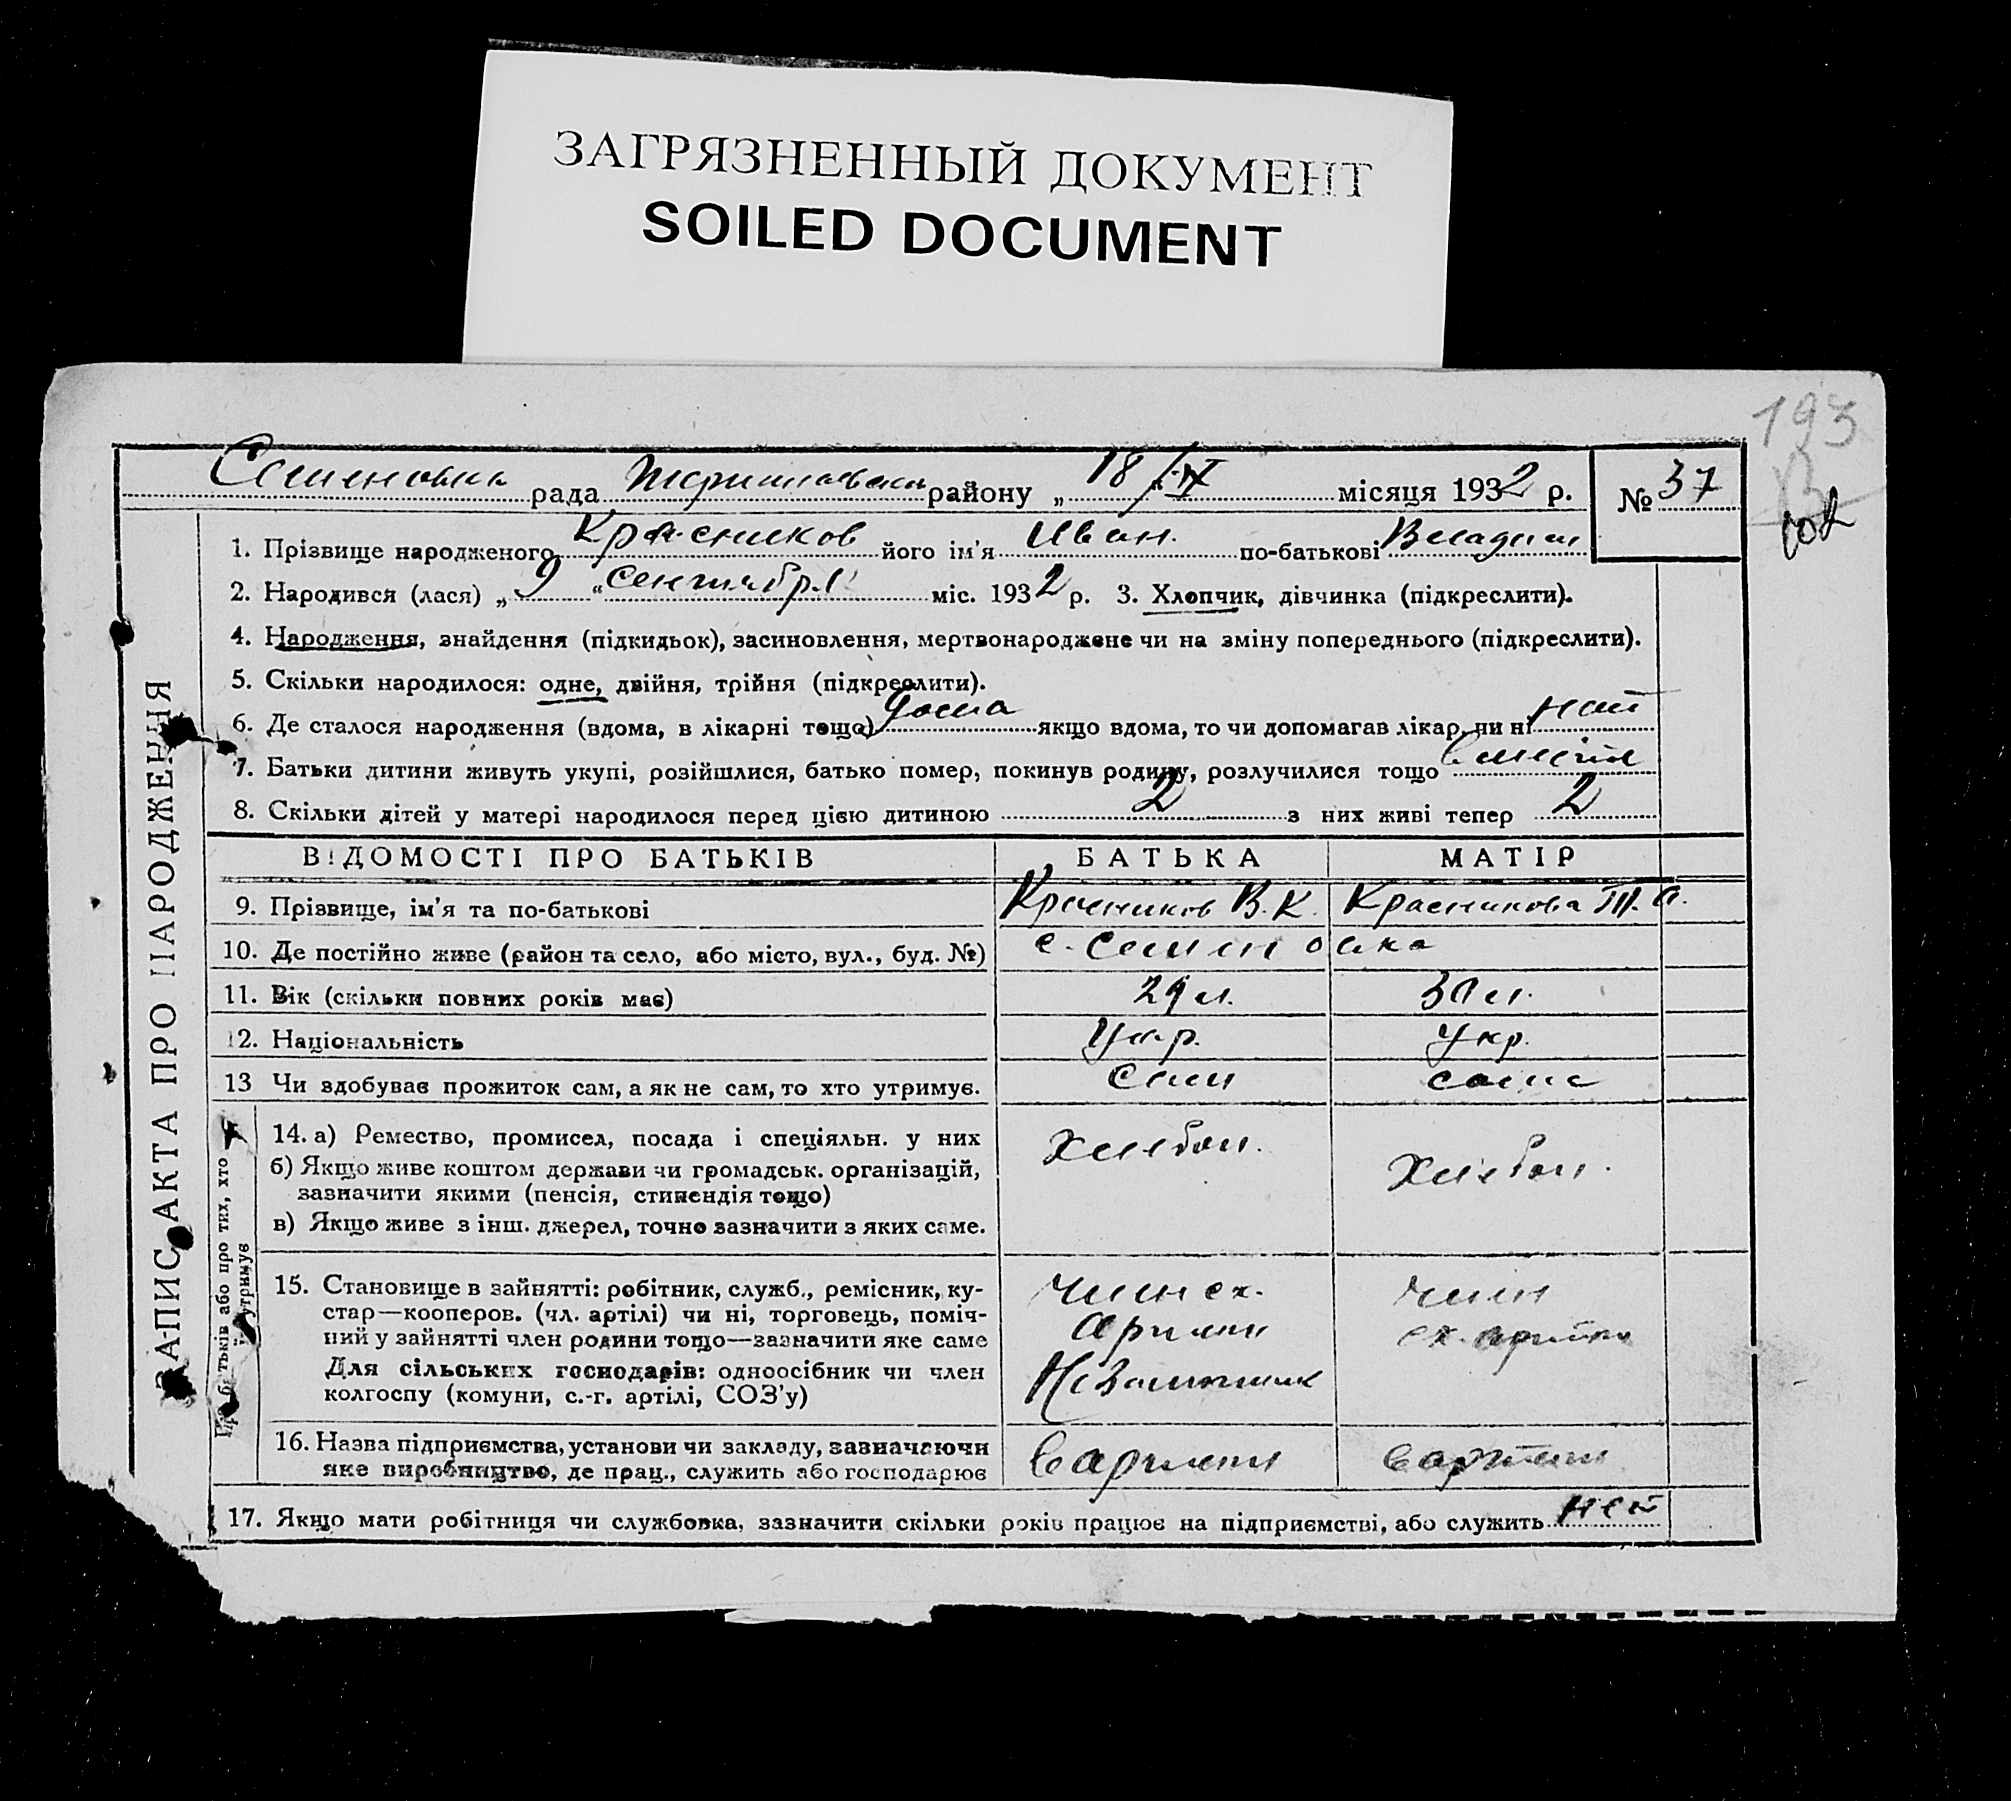 ЗАГРЯЗНЕННЫЙ ДОКУМЕНТ
SOILED DOCUMENT
193
рада району „18/IX місяця 1932 р. № 37
1. Прізвище народженого Красников його ім'я Иван. по-батькові Владим
2. Народився (лася) „9“ сентября міс. 1932 р. 3. Хлопчик, дівчинка (підкреслити).
4. Народження, знайдення (підкидьок), засиновлення, мертвонароджене чи на зміну попереднього (підкреслити).
5. Скільки народилося: одне, двійня, трійня (підкреслити).
6. Де сталося народження (вдома, в лікарні тощо) дома якщо вдома, то чи допомагав лікар, чи ні нет
7. Батьки дитини живуть укупі, розійшлися, батько помер, покинув родину, розлучилися тощо вместе
8. Скільки дітей у матері народилося перед цією дитиною 2 з них живі тепер 2
ЗАПИС АКТА ПРО НАРОДЖЕННЯ
ВІДОМОСТІ ПРО БАТЬКІВ БАТЬКА МАТІР
9. Прізвище, ім'я та по-батькові Красников В.К. Красникова Т.А.
10. Де постійно живе (район та село, або місто, вул., буд. №) с. Семеновка
11. Вік (скільки повних років має) 29 л. 30 л.
12. Національність Укр. Укр.
13 Чи здобував прожиток сам, а як не сам, то хто утримує. Сам сама
Про батьків або про тих, хто
й утримує
14. а) Ремество, промисел, посада і спеціяльн. у них Хлебоп. Хлебоп.
б) Якщо живе коштом держави чи громадськ. організацій,
зазначити якими (пенсія, стипендія тощо)
в) Якщо живе з інш. джерел, точно зазначити з яких саме.
15. Становище в зайнятті: робітник, служб., ремісник, ку-
стар—кооперов. (чл. артілі) чи ні, торговець, поміч-
ний у зайнятті член родини тощо—зазначити яке саме
Для сільських господарів: одноосібник чи член
колгоспу (комуни, с.-г. артілі, СОЗ'у)
член сх. член
Артели сх. артели
16. Назва підприємства, установи чи закладу, зазначаючи
яке виробництво, де прац., служить або господарює
в артели в артели
17. Якщо мати робітниця чи службовка, зазначити скільки років працює на підприємстві, або служить нет